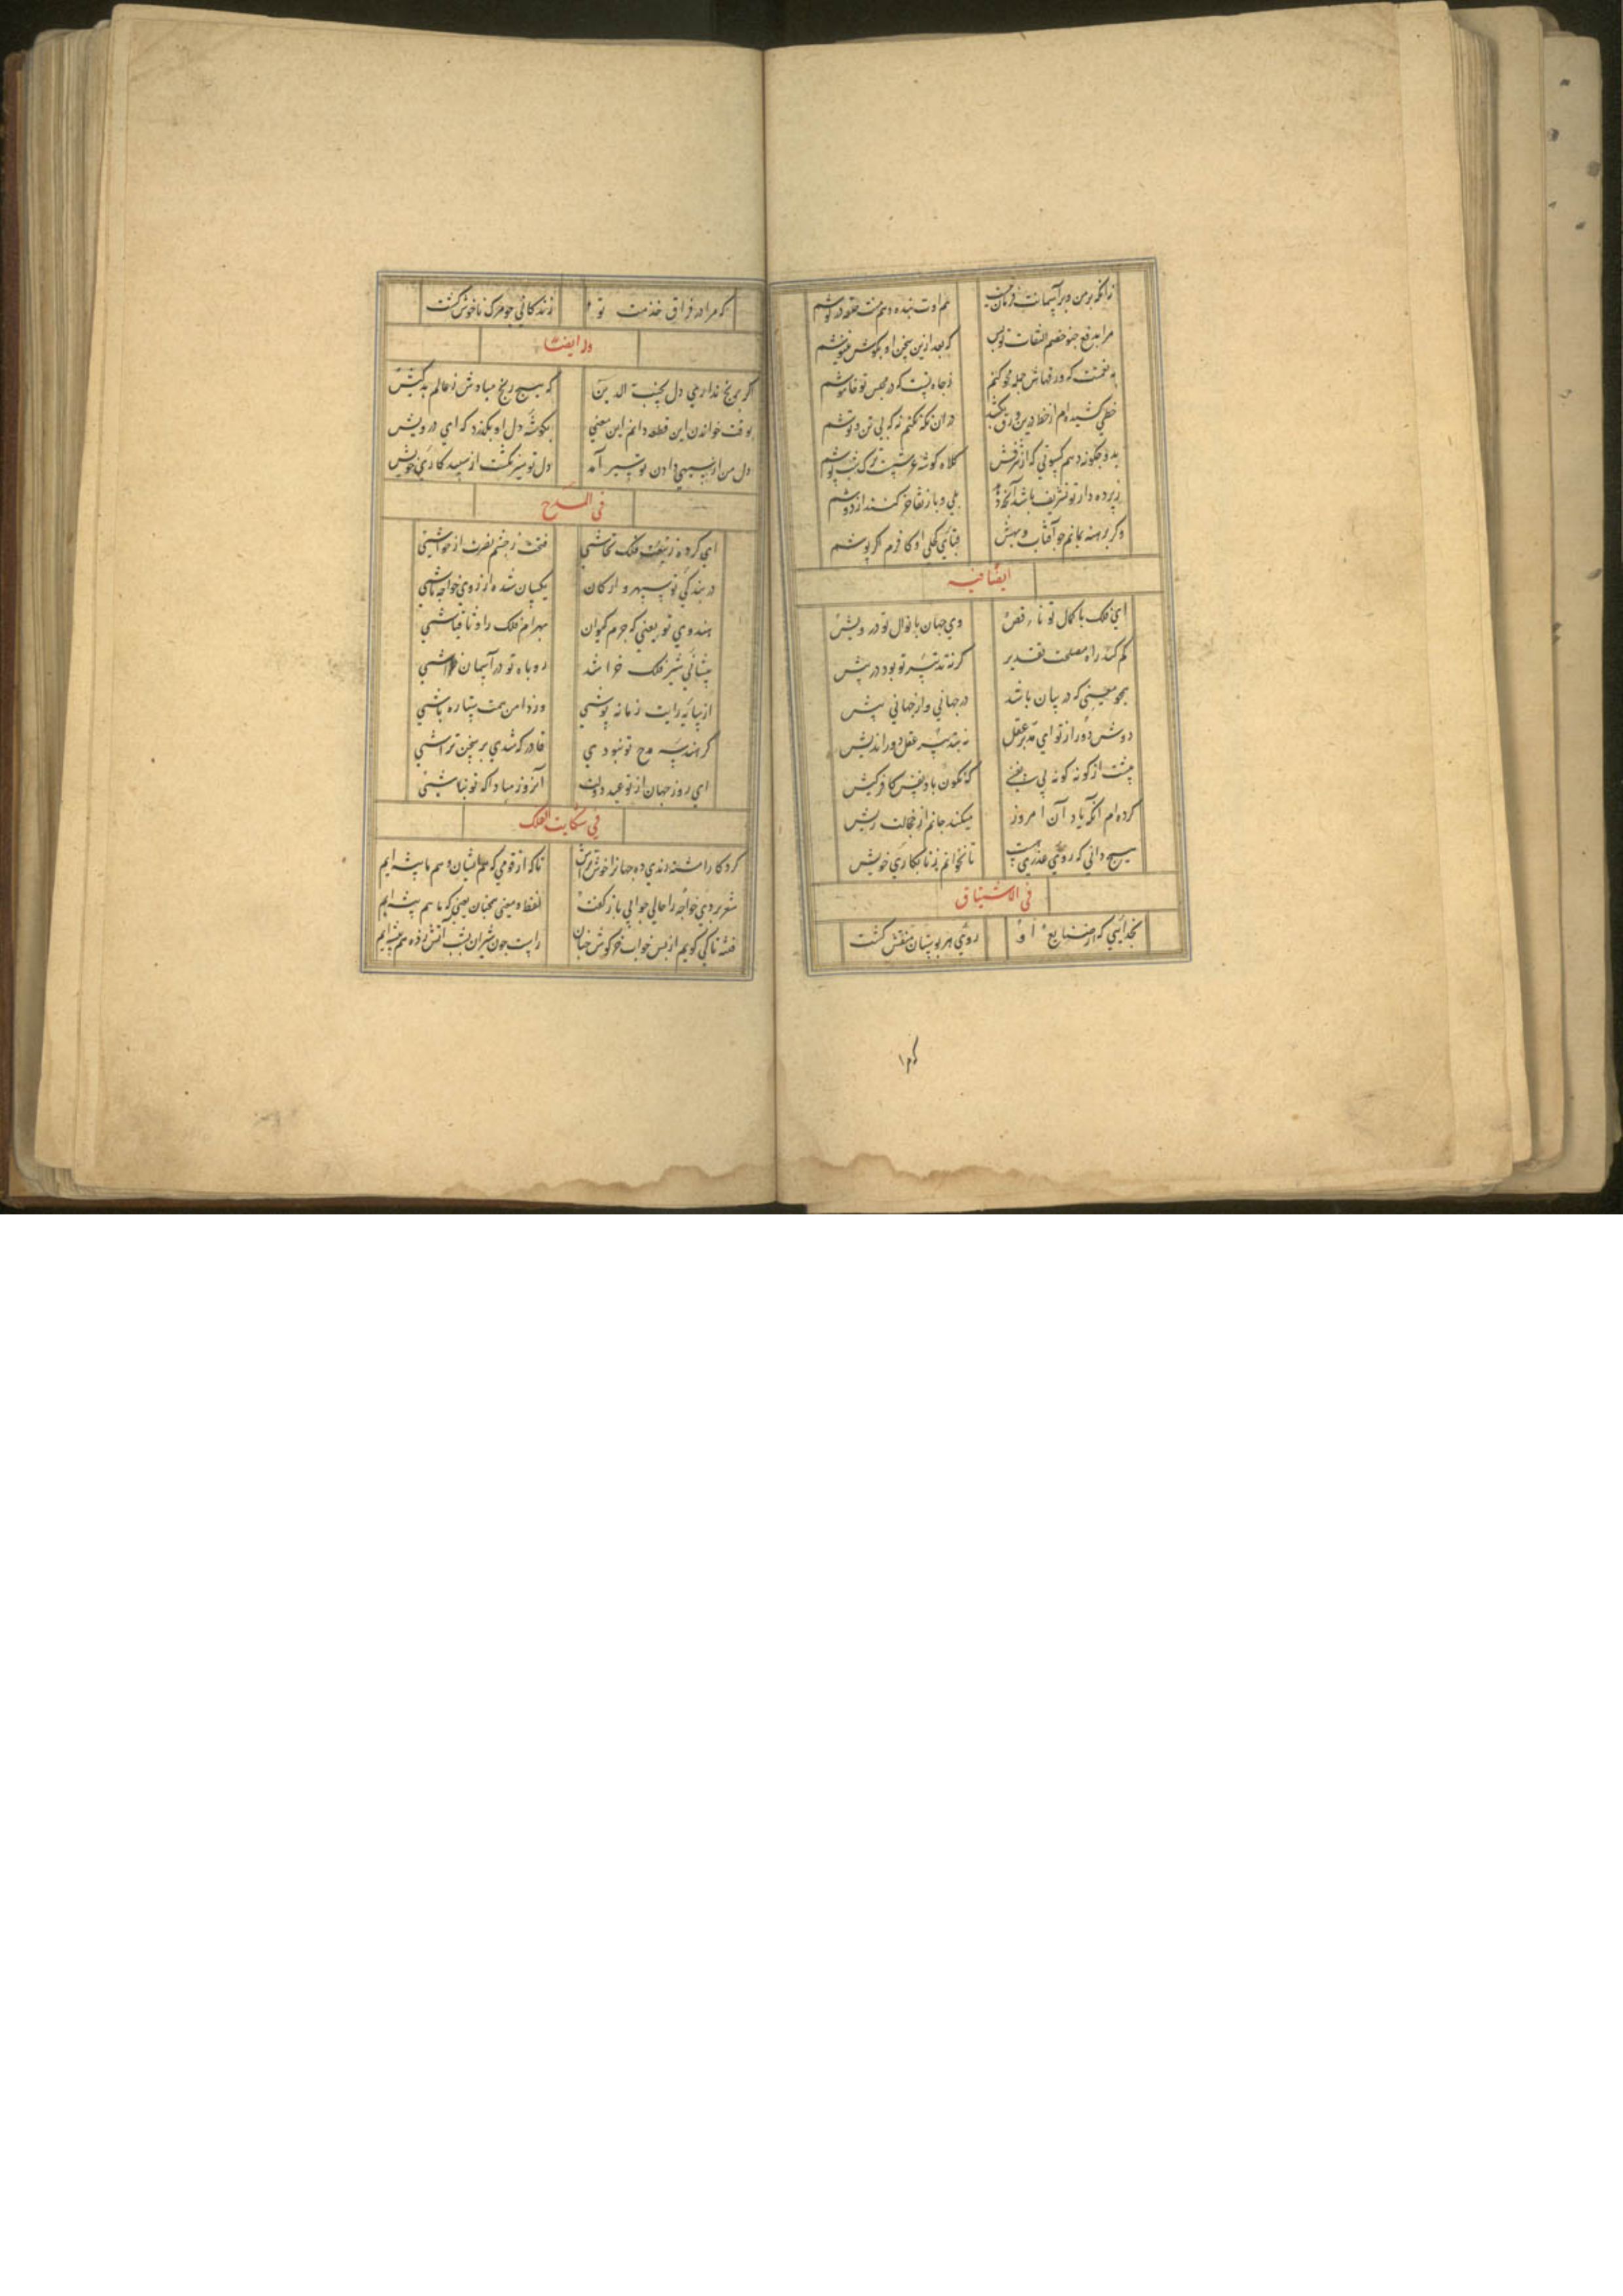 زانکه بر من و بر آسمانت فرمان هم اوت بنده و هم منت حلقه در گوشم
مرا بدفع خصم التفات تو بس که بعد ازین سخن او بکوش ننیوشم
به نعمتت که ورقهاش جمله محو کنم ز جاه تست که در مجلس تو خاموشم
خطی کشیده‌ام از خط دران نکه نکنم نه که بی تن و توشم
بدو چگونه دهم کسوتی که از شرفش کلاه گوشه عرشست ترک شب پوشم
ز پرده دار تو تشریف باشد بلی و باز تفاخر کنند از دوشم
و گر برهنه بمانم چو آفتاب و بهش قبای کحلی او کافرم اگر پوشم
ایضا فیه
ای فلک با کمال تو ناقص وی جهان با نوال تو درویش
کم کند راه مصلحت تقدیر گر نه تدبیر تو بود در پیش
همچو معنی که در بیان باشد در جهانی و از جهانی پیش
دوش دور از تو ای مدبر عقل نه بتدبیر عقل دور اندیش
پشت از کونه کونه بی نفسی که نکون باد نفس کافر کیش
کرده‌ام آنکه یاد آن امروز میکند جانم از خجالت ریش
هیچ دانی که روی عذری هست تا نخوانم به نابکاری خویش
فی الاشتیاق
بخدایی که از صنایع او روی هر بوستان منقش گشت
که مرا در فراق خدمت تو زندگانی چو مرگ ناخوش گشت
وله ایضا
اگر برنج نداری دل نجیب الدین که هیچ رنج مبادش ز عالم بدکیش
بوقت خواندن این قطعه دانم این معنی بگوشه دل او بگذرد که ای درویش
دل من از سپیدی دادن تو سیر آمد دل تو سیر نگشت از سپید کاری خویش
فی المدح
ای کرده ز تیغت فلک تحاشی فتحت ز چشم نصرت از حواشی
در بندگی تو سپهر و ارکان یکسان شده از روی خواجه تاشی
هندوی تو یعنی که جرم کیوان بهرام فلک را وثاقباشی
پیشانی شیر فلک خراشد روباه تو در آسمان خراشی
از سایه رایت زمانه پوشی وز دامن همت ستاره پاشی
گر هندسه مدح تو نبودی قادر که شدی بر سخن تراشی
ای روز جهان از تو عید دولت آن روز مبادا که تو نباشی
فی شکایت الفلک
کرد کارا مشتی رندی ده جهان را خوش تراش تا که از قومی که هم ایشان و هم ما بیشه‌ایم
شعر بردی خواجه را حالی جوابی باز گفت لفظ و معنی همچنان یعنی که ما هم پیشه‌ایم
فتنه تا کی گویم از بس خواب خرگوش جهان راست چون شیران بشب آتش زده هم بیشه‌ایم